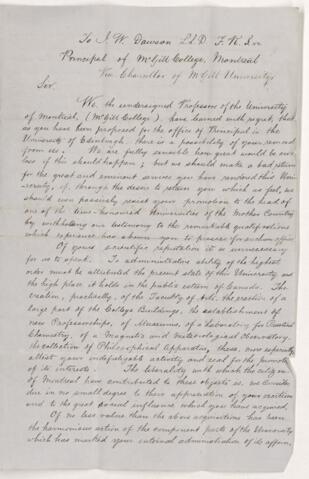 To J. W. Dawson LLD. F.R.S.
Principal of McGill College, Montreal
Vice Chancellor of McGill University
Sir.
We, the undersigned Professors of the University
of Montreal, (McGill College), have learned with regret, that,
as you have been proposed for the office of Principal in the
University of Edinburgh, there is a possibility of your removal
from us. We are fully sensible how great would be our
loss if this should happen; but we should make a bad return
for the great and eminent services you have rendered this Univ-
ersity, if, through the desire to retain you which we feel, we
should even passively resist your promotion to the head of
one of the time-honoured Universities of the Mother Country
by withholding our testimony to the remarkable qualifications
which experience has shown you to possess for such an office
Of your scientific reputation it is unnecessary
for us to speak. To administrative ability of the highest
order must be attributed the present state of this University and
the high place it holds in the public esteem of Canada. The
creation, practically, of the Faculty of Arts, the erection of a
large part of the College Buildings, the establishment of
new Professorships, of Museums, of a Laboratory for Practical
Chemistry, of a Magnetic and Meteorological Observatory,
the collection of Philosophical Apparatus, these, now separately
attest your indefatigable activity and zeal for the promotion
of its interests. The liberality with which the citizens
of Montreal have contributed to these objects is, we consider
due in no small degree to their appreciation of your exertions
and to the great social influence which you have acquired.
Of no less value than the above acquisitions has been
the harmonious action of the component parts of the University
which has marked your internal administration of its affairs,